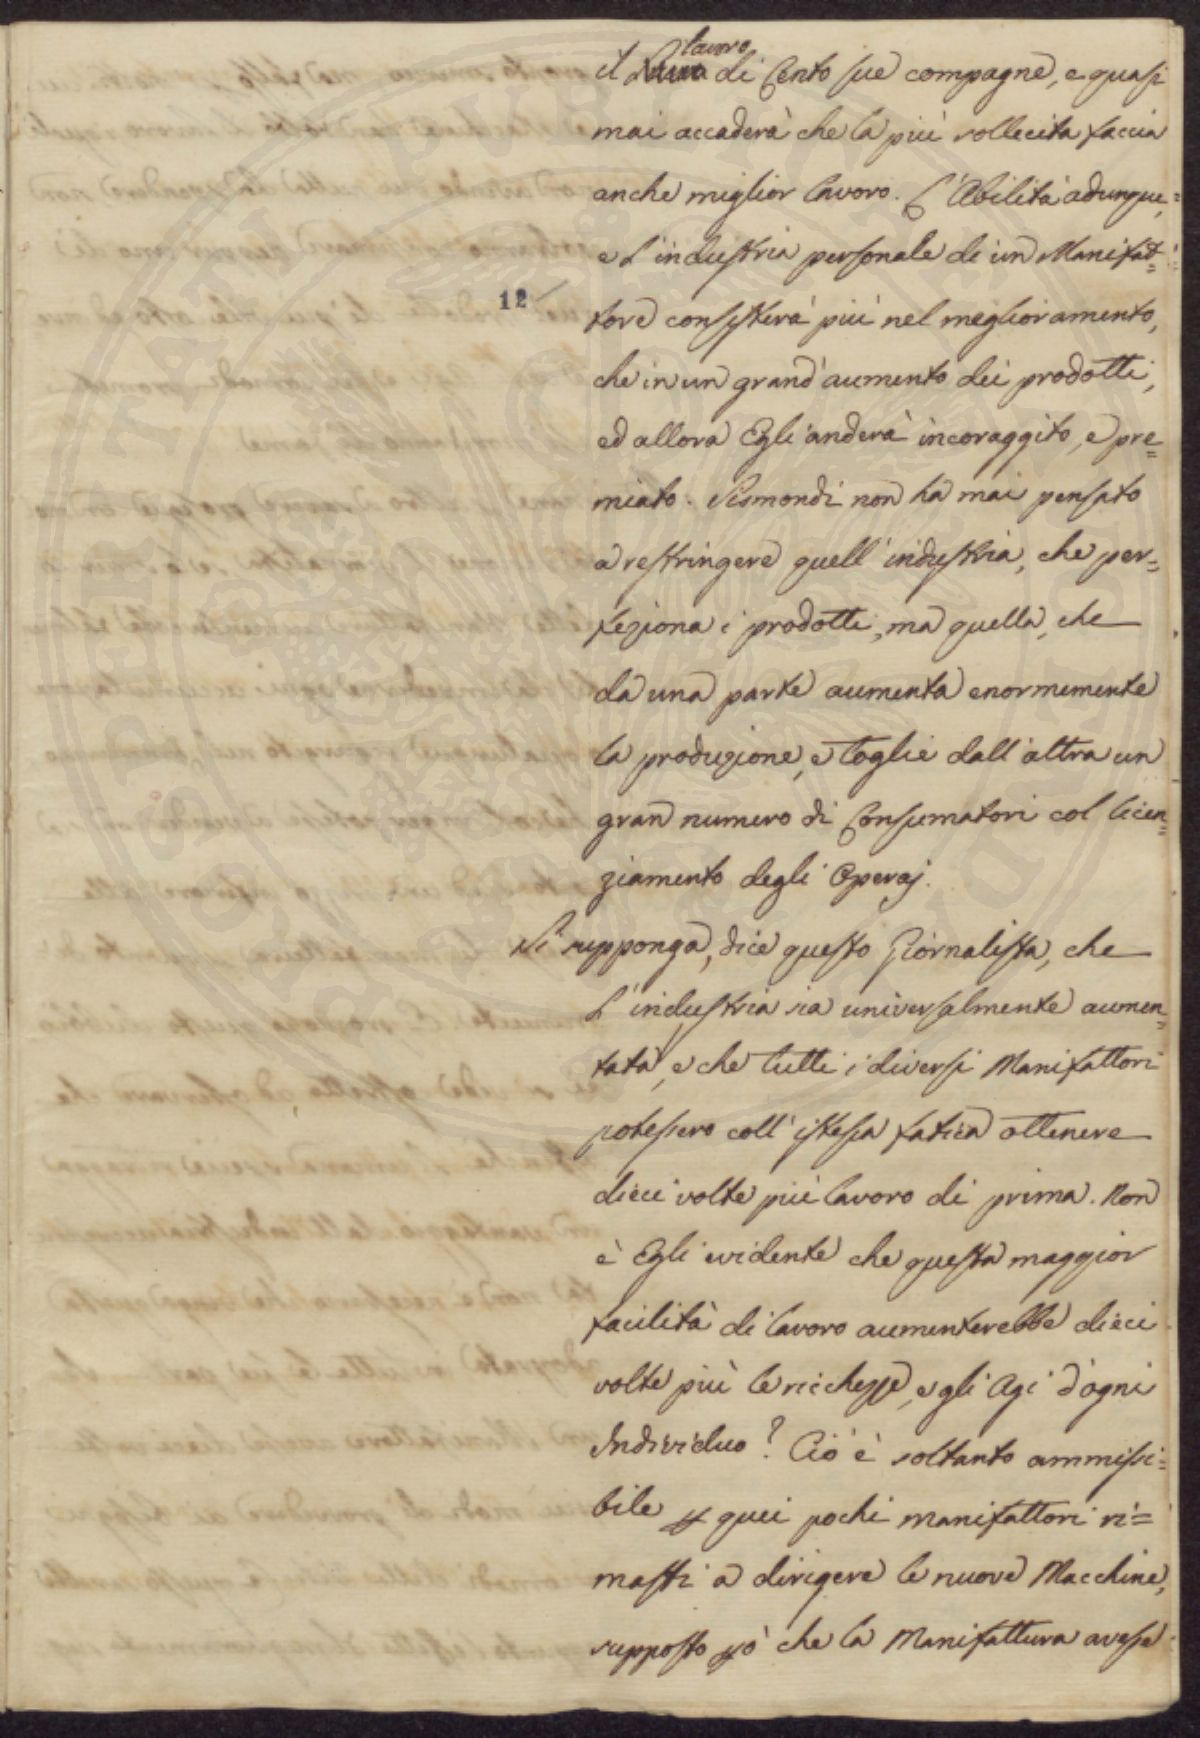 lavoro
il di Cento sue compagne, e quasi
mai accaderà che la più sollecita faccia
anche miglior lavoro. L'Abilità adunque,=
e l'industria personale di un Manifat=
12
tore consisterà più nel miglioramento,
che in un grand'aumento dei prodotti,
ed allora Egli anderà incoraggito, e pre=
miato. Sismondi non ha mai pensato
a restringere quell'industria, che per=
feziona i prodotti, ma quella, che
da una parte aumenta enormemente
la produzione, e toglie dall'altra un
gran numero di Consumatori col licen=
ziamento degli Operaj.
Si supponga, dice questo Giornalista, che
l'industria sia universalmente aumen=
tata, e che tutti i diversi Manifattori
potessero coll'istessa fatica ottenere
dieci volte più lavoro di prima. Non
è Egli evidente che questa maggior
facilità di lavoro aumenterebbe dieci
volte più le ricchezze, e gli Agi d'ogni
Individuo? Ciò è soltanto ammissi=
bile p quei pochi manifattori ri=
masti a dirigere le nuove Macchine,
supposto pò che la Manifattura avesse